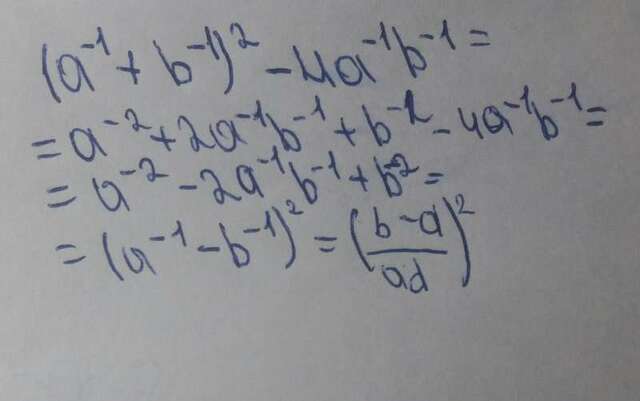 (a⁻¹ + b⁻¹)² - 4a⁻¹b⁻¹ =
= a⁻² + 2a⁻¹b⁻¹ + b⁻² - 4a⁻¹b⁻¹ =
= a⁻² - 2a⁻¹b⁻¹ + b⁻² =
= (a⁻¹ - b⁻¹)² = ((b - a)/(ad))²